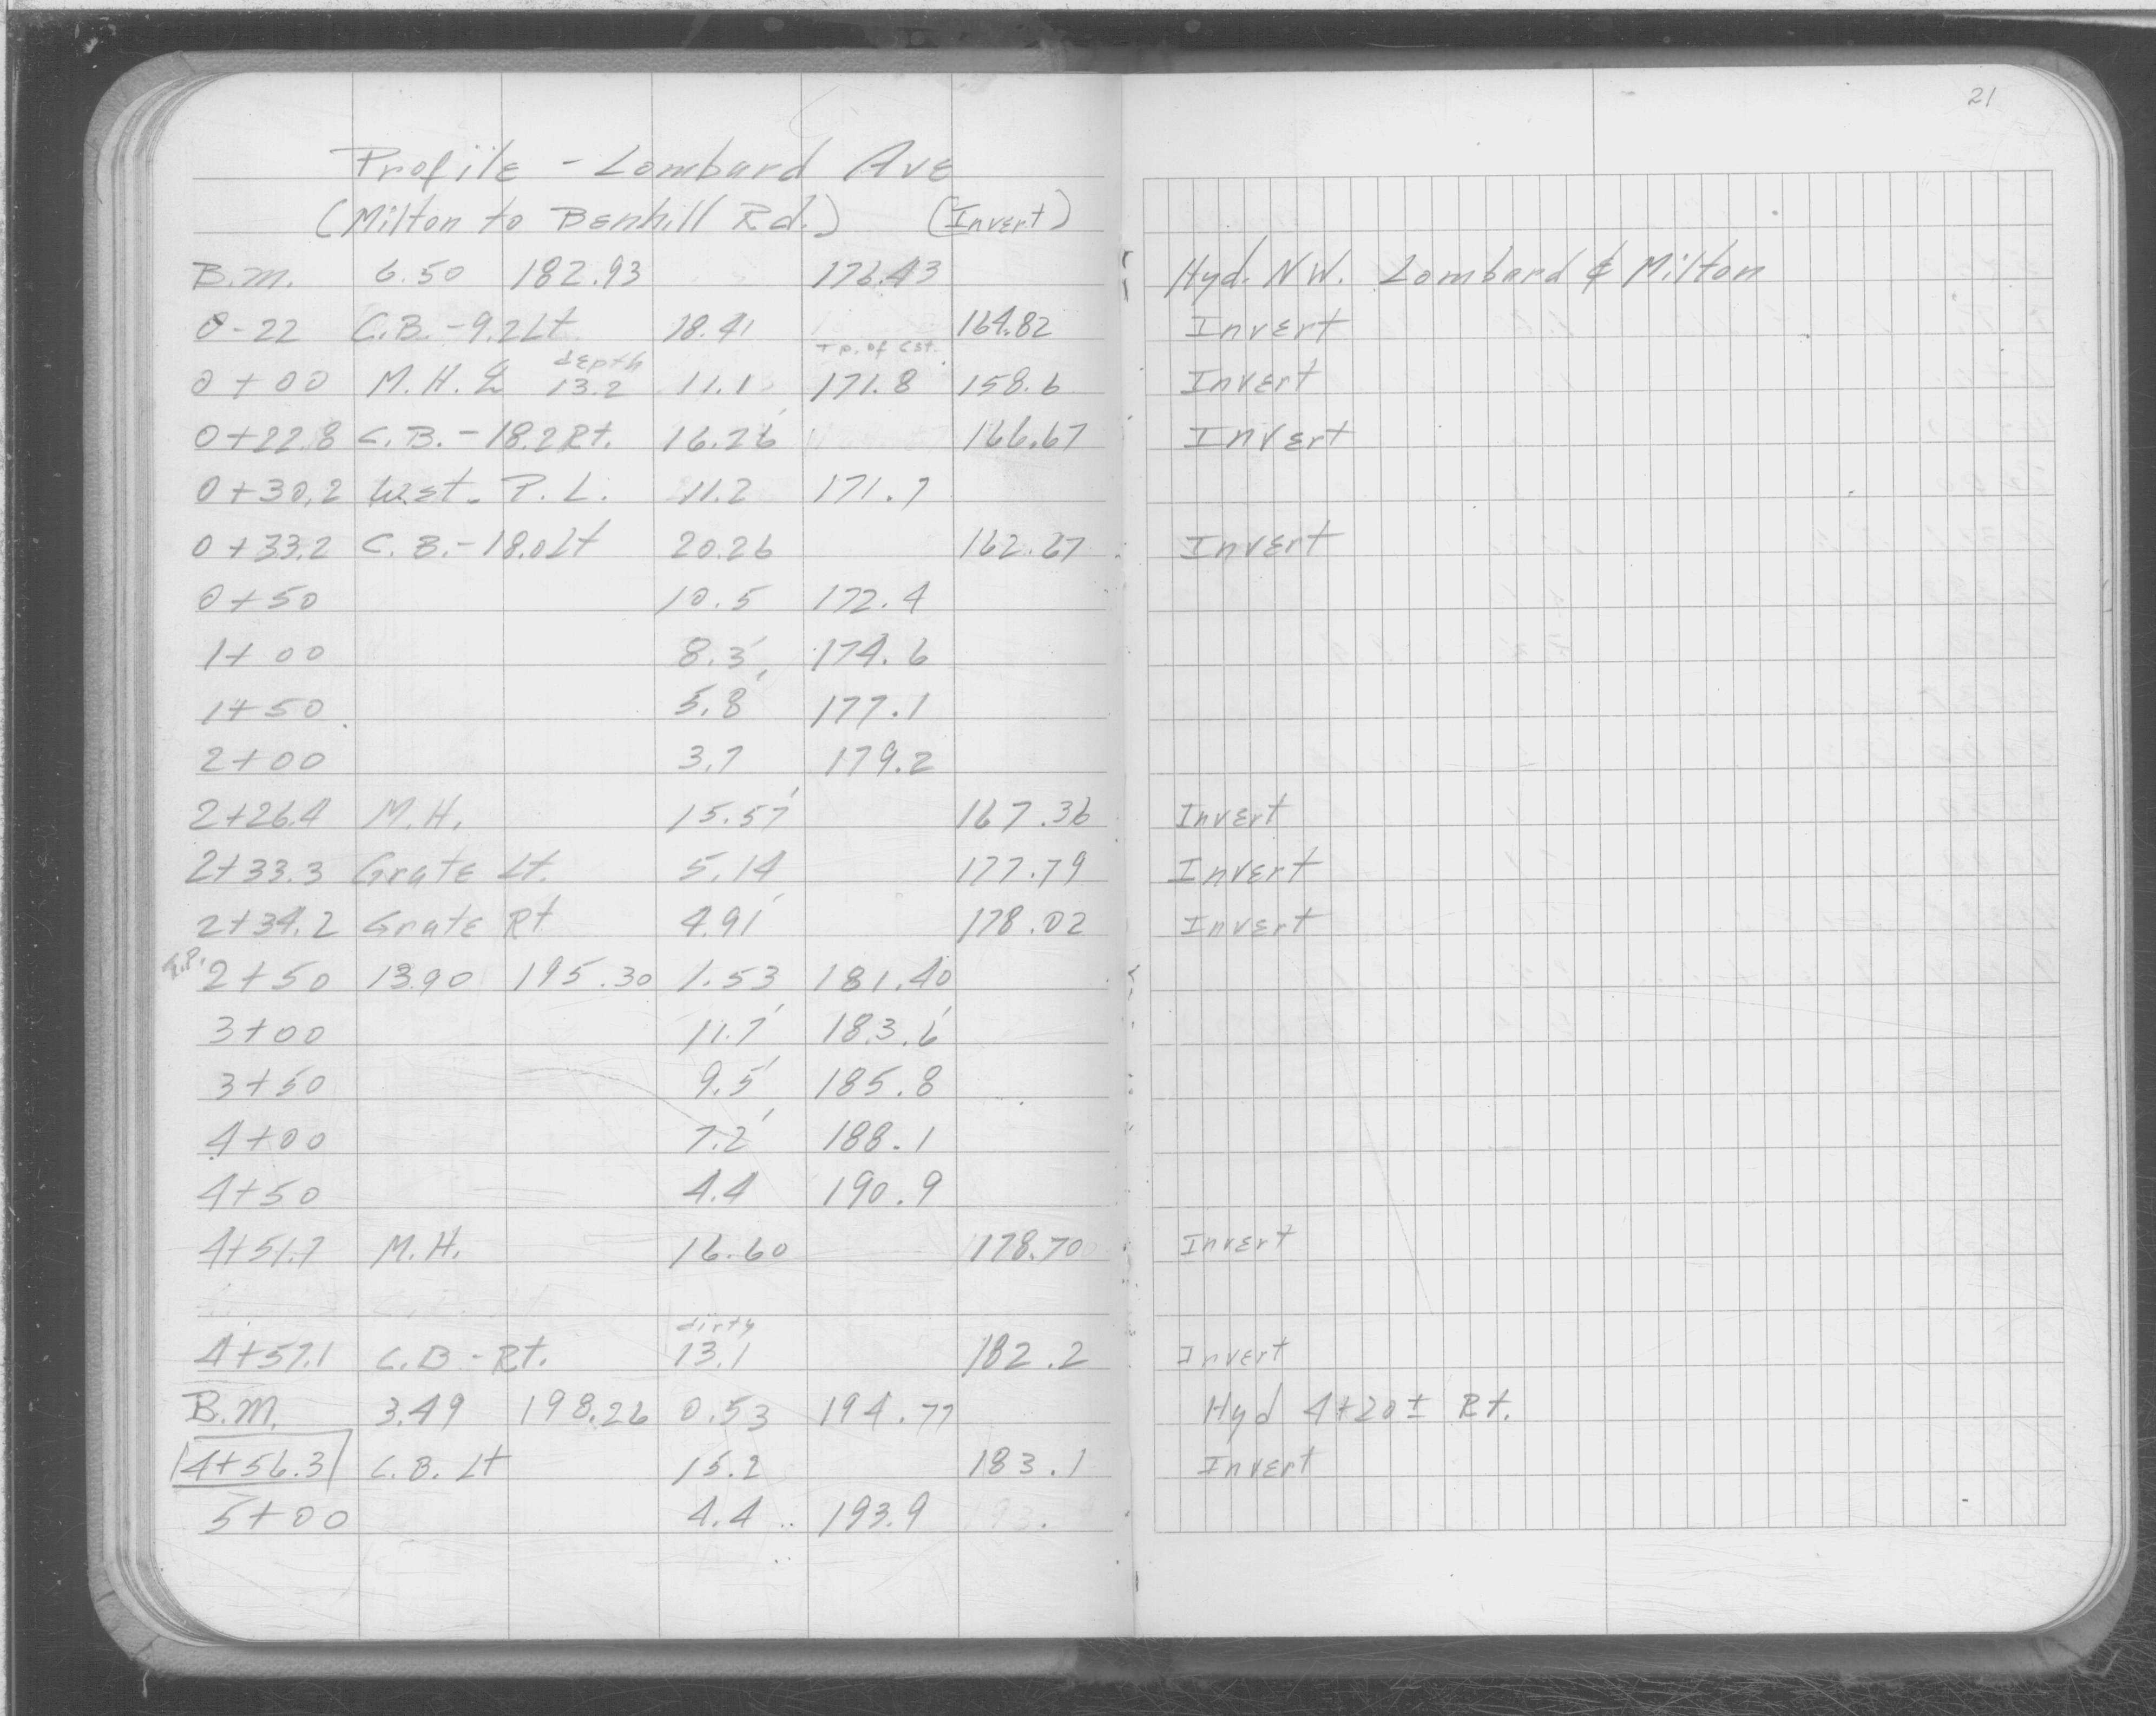 21
Profile - Lombard Ave
(Milton to Benhill Rd.) (Invert)
B.M. 6.50 182.93 176.43 Hyd. N.W. Lombard & Milton
0-22 C.B. - 9.2 Lt 18.11 164.82 Invert
depth Tp. of Cst.
0+00 M.H. ℄ 13.2 11.1 171.8 158.6 Invert
0+22.8 C.B. - 18.2 Rt. 16.26 166.67 Invert
0+30.2 West. P.L. 11.2 171.7
0+33.2 C.B. - 18.0 Lt 20.26 162.67 Invert
0+50 10.5 172.4
1+00 8.3 174.6
1+50 5.8 177.1
2+00 3.7 179.2
2+26.4 M.H. 15.57 167.36 Invert
2+33.3 Grate Lt. 5.14 177.79 Invert
2+34.2 Grate Rt 4.91 178.02 Invert
2+50 13.90 195.30 1.53 181.40
3+00 11.7 183.6
3+50 9.5 185.8
4+00 7.2 188.1
4+50 4.4 190.9
4+51.7 M.H. 16.60 178.70 Invert
dirty
4+57.1 C.B - Rt. 13.1 182.2 Invert
B.M. 3.49 198.26 0.53 194.77 Hyd 4+20± Rt.
4+56.3 C.B. Lt 15.2 183.1 Invert
5+00 4.4 193.9